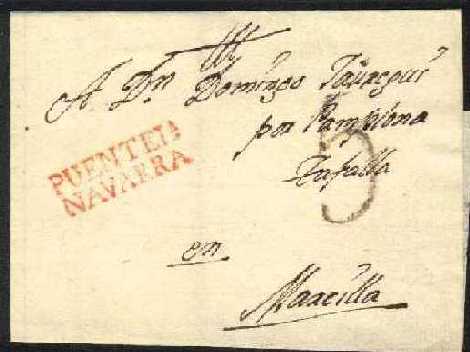 A Dn. Domingo Jauregui
por Pamplona
Tafalla
5
PUENTE LA
NAVARRA
en
Marcilla